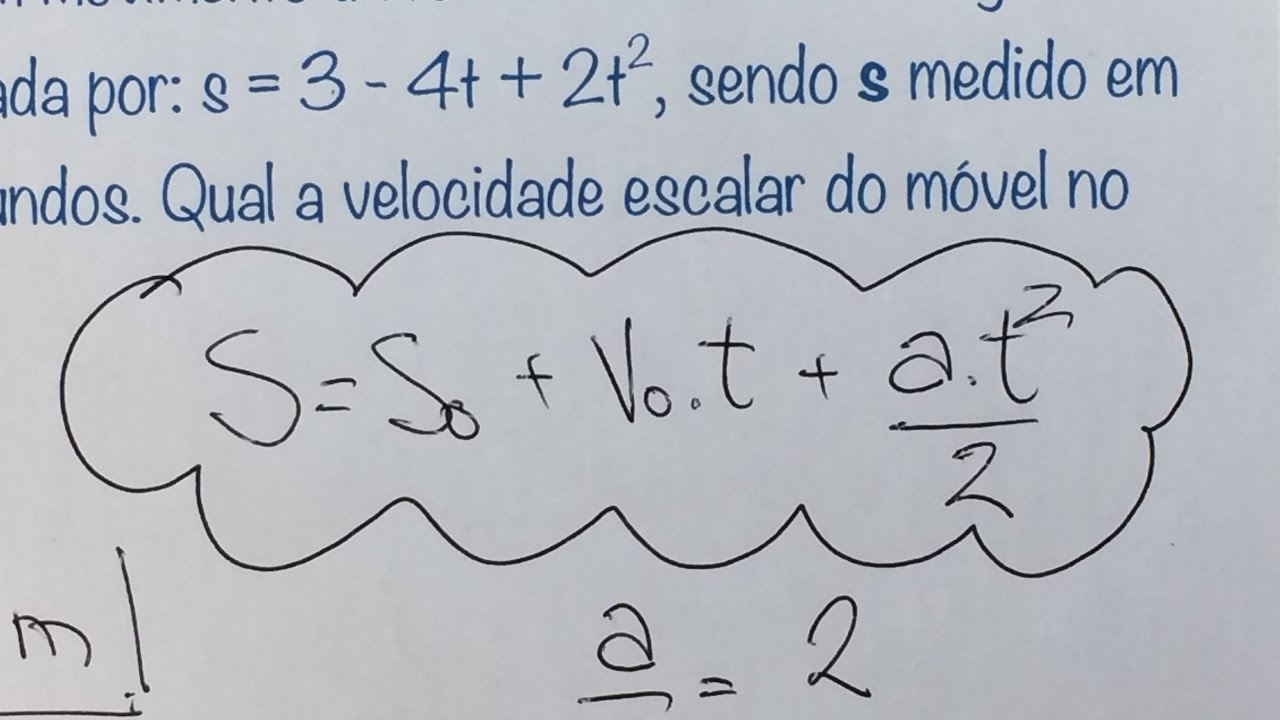 por: s = 3 - 4t + 2t², sendo s medido em
Qual a velocidade escalar do móvel no
S = S₀ + V₀.t + a.t²/2
m
a = 2